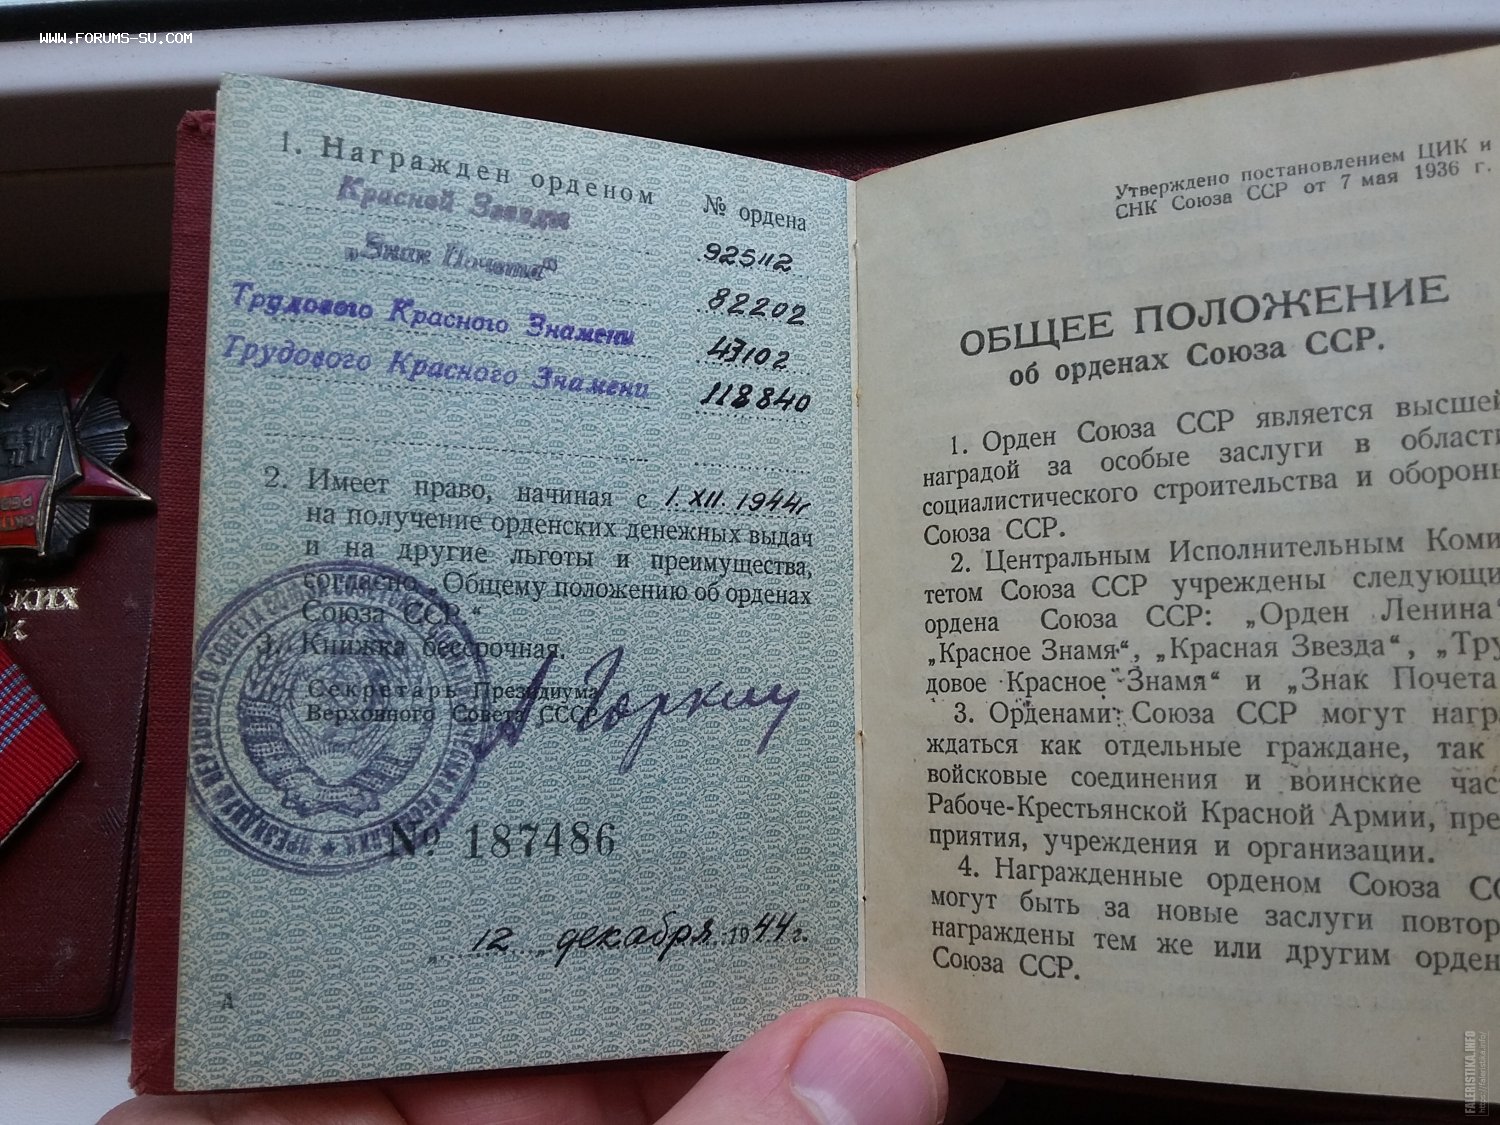 WWW.FORUMS-SU.COM
1. Награжден орденом
№ ордена
Красной Звезды
92512
„Знак Почета“
82202
Трудового Красного Знамени
43102
Трудового Красного Знамени
118840
2. Имеет право, начиная с 1.XII.1944г
на получение орденских денежных выдач
и на другие льготы и преимущества,
согласно „Общему положению об орденах
Союза ССР.“
3. Книжка бессрочная.
Секретарь Президиума
Верховного Совета СССР
А Горкин
№ 187486
„12„ декабря 1944 г.
А
Утверждено постановлением ЦИК и
СНК Союза ССР от 7 мая 1936 г.
ОБЩЕЕ ПОЛОЖЕНИЕ
об орденах Союза ССР.
1. Орден Союза ССР является высшей
наградой за особые заслуги в област
социалистического строительства и оборон
Союза ССР.
2. Центральным Исполнительным Коми
тетом Союза ССР учреждены следующи
ордена Союза ССР: „Орден Ленина“
„Красное Знамя“, „Красная Звезда“, „Тру
довое Красное Знамя“ и „Знак Почета
3. Орденами Союза ССР могут нагр
ждаться как отдельные граждане, так
войсковые соединения и воинские час
Рабоче-Крестьянской Красной Армии, пре
приятия, учреждения и организации.
4. Награжденные орденом Союза СС
могут быть за новые заслуги повтор
награждены тем же или другим орден
Союза ССР.
ских
FALERISTIKA.INFO
https://faleristika.info/